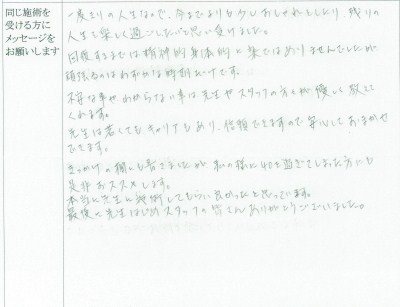 同じ施術を
受ける方に
メッセージを
お願いします
一度きりの人生なので、今までよりも少しおしゃれをしたり、残りの
人生を楽しく過ごしたいと思い受けました。
回復するまでは精神的身体的に楽ではありませんでしたが
頑張るのはわずかな時間だけです…
不安な事やわからない事は先生やスタッフの方々が優しく教えて
くれます。
先生は若くてもキャリアもあり、信頼できますので安心しておまかせ
できます。
きっかけの欄にも書きましたが、私の様に40を過ぎてしまった方にも
是非おススメします。
本当に先生に施術してもらい良かったと思っています。
最後に先生はじめスタッフの皆さんありがとうございました。